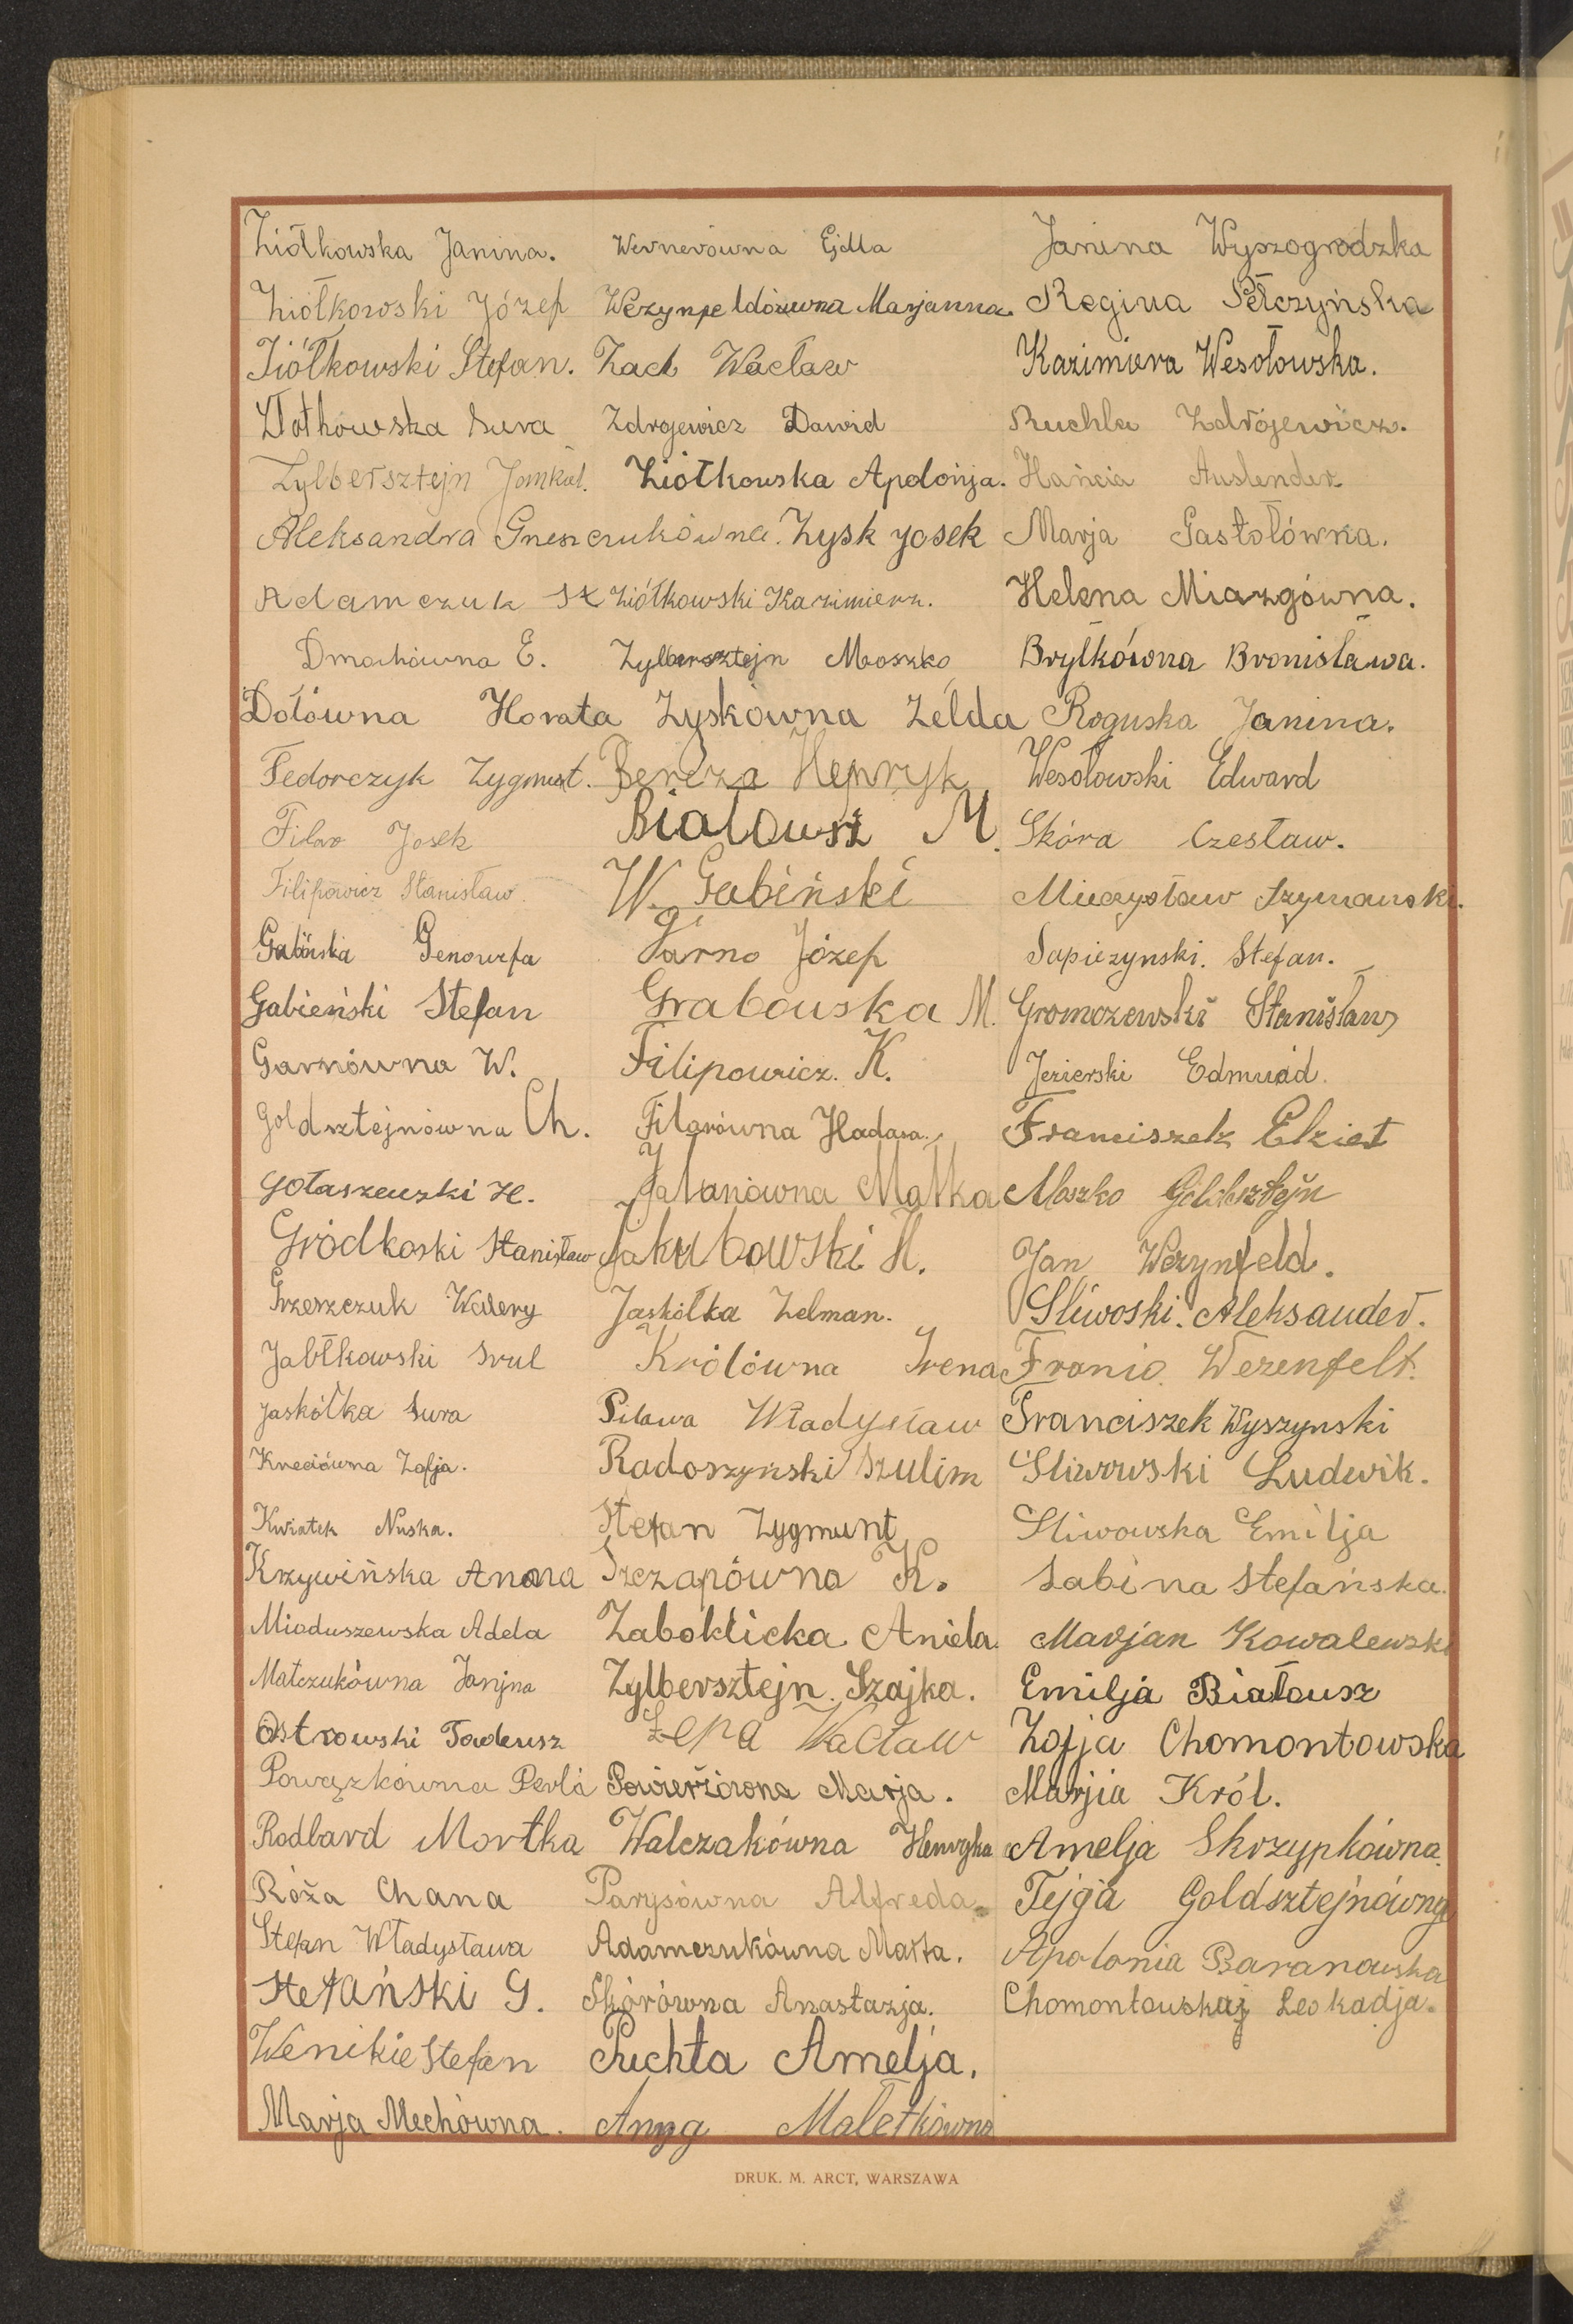 Ziółkowska Janina.
Ziółkowski Józef
Ziółkowski Stefan.
Złotkowska Sura
Zylbersztejn Jankiel.
Aleksandra Gneszczukówna.
Adamczuk St
Dmochówna E.
Dołówna Horata
Fedorczyk Zygmunt.
Filar Josek
Filipowicz Stanisław.
Gabińska Genowefa
Gabieński Stefan
Garnówna W.
Goldsztejnówna Ch.
Gołaszewski H.
Gródkoski Stanisław
Grzeszczuk Walery
Jabłkowski Srul
Jaskółka Sura
Kneciówna Zofja.
Kwiatek Nuska.
Krzywińska Anna
Mioduszewska Adela
Matczukówna Janina
Ostrowski Tadeusz
Powązkówna Perla
Rodbard Mortka
Róża Chana
Stefan Władysława
Stefański G.
Wenikie Stefan
Marja Mechówna.
Wernerówna Ejdla
Wezynpeldówna Marjanna.
Zach Wacław
Zdrojewicz Dawid
Ziółkowska Apolonja.
Zysk Josek
Ziółkowski Kazimierz.
Zylbersztejn Moszko
Zyskówna Zelda
Bereza Henryk
Białowsz M.
W. Gabiński
Jarno Józef
Grabowska M.
Filipowicz. K.
Filarówna Hadasa.
Jabłanówna Małka
Jakubowski H.
Jaskółka Zelman.
Królówna Irena
Pilawa Władysław
Radoszyński Szulim
Stefan Zygmunt
Szczapówna K.
Zaboklicka Aniela.
Zylbersztejn. Szajka.
Żepa Wacław
Powierżowna Marja.
Walczakówna Henryka
Parysówna Alfreda.
Adamczukówna Marta.
Skórówna Anastazja.
Puchta Amelja.
Anna Maletkówna
Janina Wyszogrodzka
Regina Pełczyńska
Kazimiera Wesołowska.
Ruchla Zdrójewicz.
Hańcia Auslender
Marja Gastołówna.
Helena Miazgówna.
Bryłkówna Bronisława.
Roguska Janina.
Wesołowski Edward
Skóra Czesław.
Mieczysław Szymański.
Sapieżynski. Stefan.
Gromczewski Stanisław
Jezierski Edmund.
Franciszek Elziet
Moszko Goldsztejn
Jan Wezynfeld.
Śliwoski. Aleksander.
Franio. Wezenfelt.
Franciszek Wyszynski
Śliwowski Ludwik.
Śliwowska Emilja
Sabina Stefańska.
Marjan Kowalewski
Emilja Białousz
Zofja Chomontowska
Marjia Król.
Amelja Skrzypkówna.
Fejga Goldsztejnówna
Apolonia Baranowska
Chomontowskaj Leokadja.
DRUK. M. ARCT, WARSZAWA